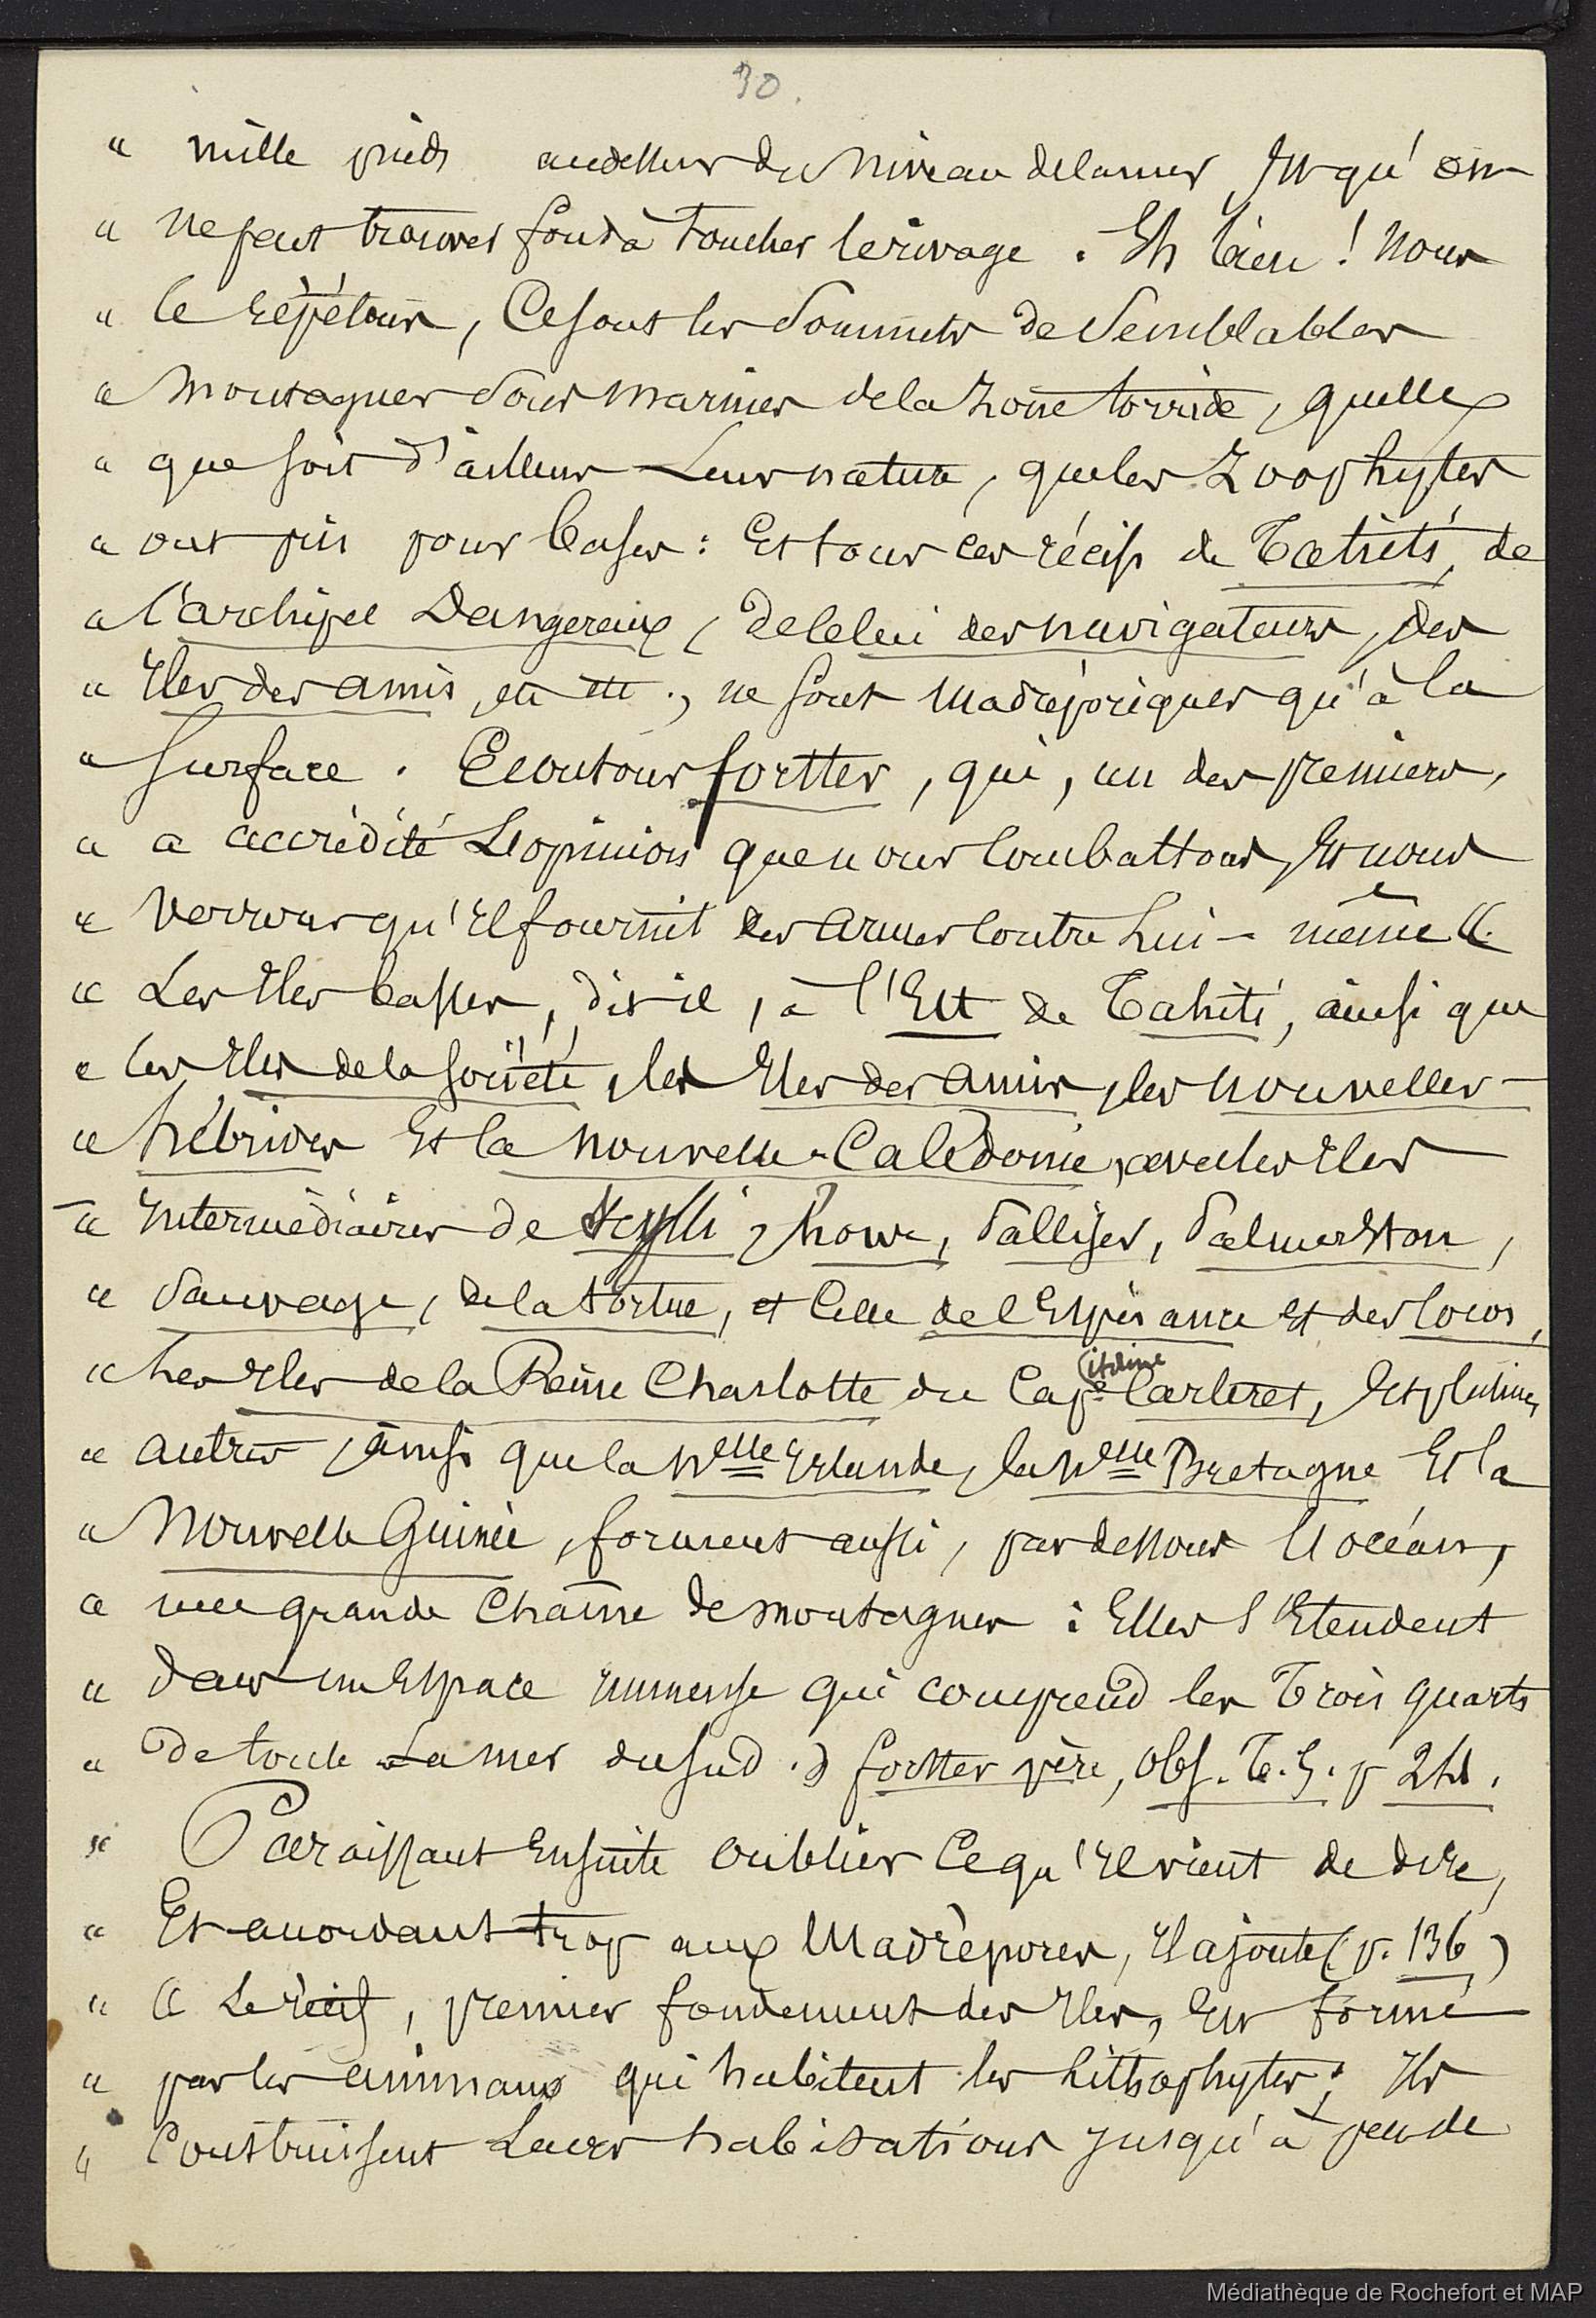 30.
" mille pieds audessus du Niveau de la mer, Et qu'on
" ne peut trouver fond à toucher le rivage. Eh bien ! Nous
" le répétons, Ce sont les Sommets de Semblables
" Montagnes Sous marines de la Zone torride, quelle
" que soit d'ailleurs Leur nature, que les Zoophytes
" ont pris pour bases : Et tous ces récifs de Tahiti, de
" l'archipel Dangereux, de celui des navigateurs, des
" Iles des amis, etc etc., ne sont Madréporiques qu'à la
" Surface. Ecoutons forster, qui, un des premiers,
" a accrédité L'opinion que nous Combattons, Et nous
" Verrons qu'Il fournit des armes Contre Lui-même «.
" Les Iles basses, dit-il, à l'Est de Tahiti, ainsi que
" les Iles de la société, les Iles des amis, les nouvelles-
" hébrides Et la Nouvelle-Calédonie, avec les Iles
" Intermédiaires de Scylli, howe, Palliser, Palmerston,
" Sauvage, de la tortue, et Celle de l'Espérance Et des Cocos,
" Les Iles de la Reine Charlotte du Cap.e Carteret, Et plusieurs
" autres, ainsi que la Nelle Irlande, la Nelle Bretagne Et la
" Nouvelle Guinée, forment aussi, par dessous l'océan,
" une grande Chaîne de montagnes : Elles S'Etendent
" dans un Espace Immense qui comprend les Trois quarts
" De toute La mer du Sud. » forster père, obs. T. 5. p
" Paraissant Ensuite oublier Ce qu'Il vient de dire,
" Et accordant trop aux Madrépores, Il ajoute (p. 136)
" « Le récif, premier fondement des Iles, Est formé
" par les animaux qui habitent les Lithophytes ; Ils
" Construisent Leurs habitations jusqu'à peu de
Médiathèque de Rochefort et MAP